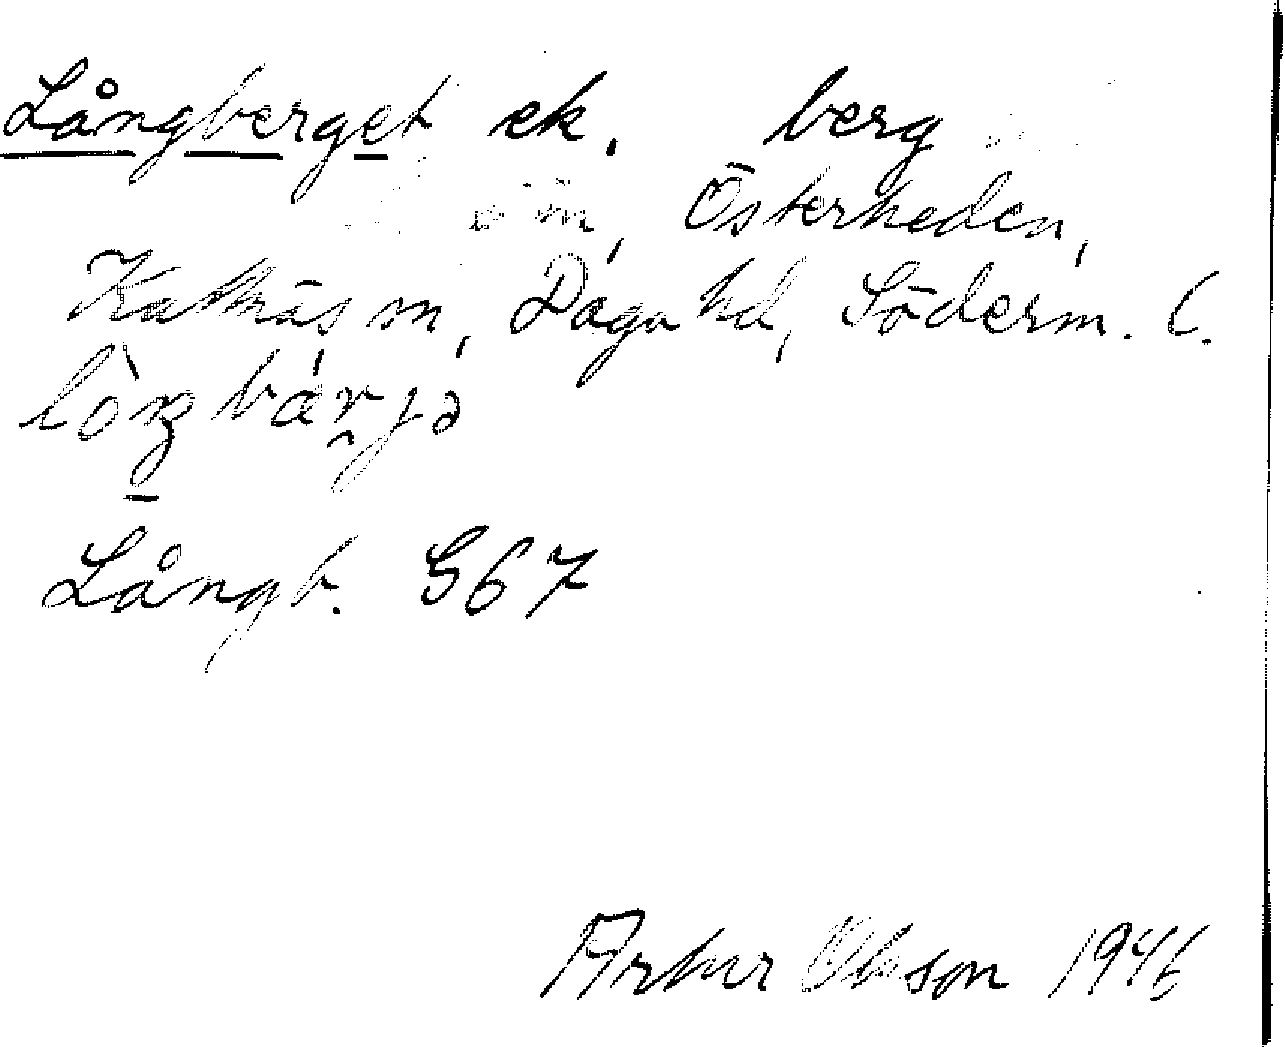 Långberget ek. berg
öm, Österheden,
Kattnäs sn, Daga hd, Söderm. l.
Långb. 567
Artur Olsson 1946